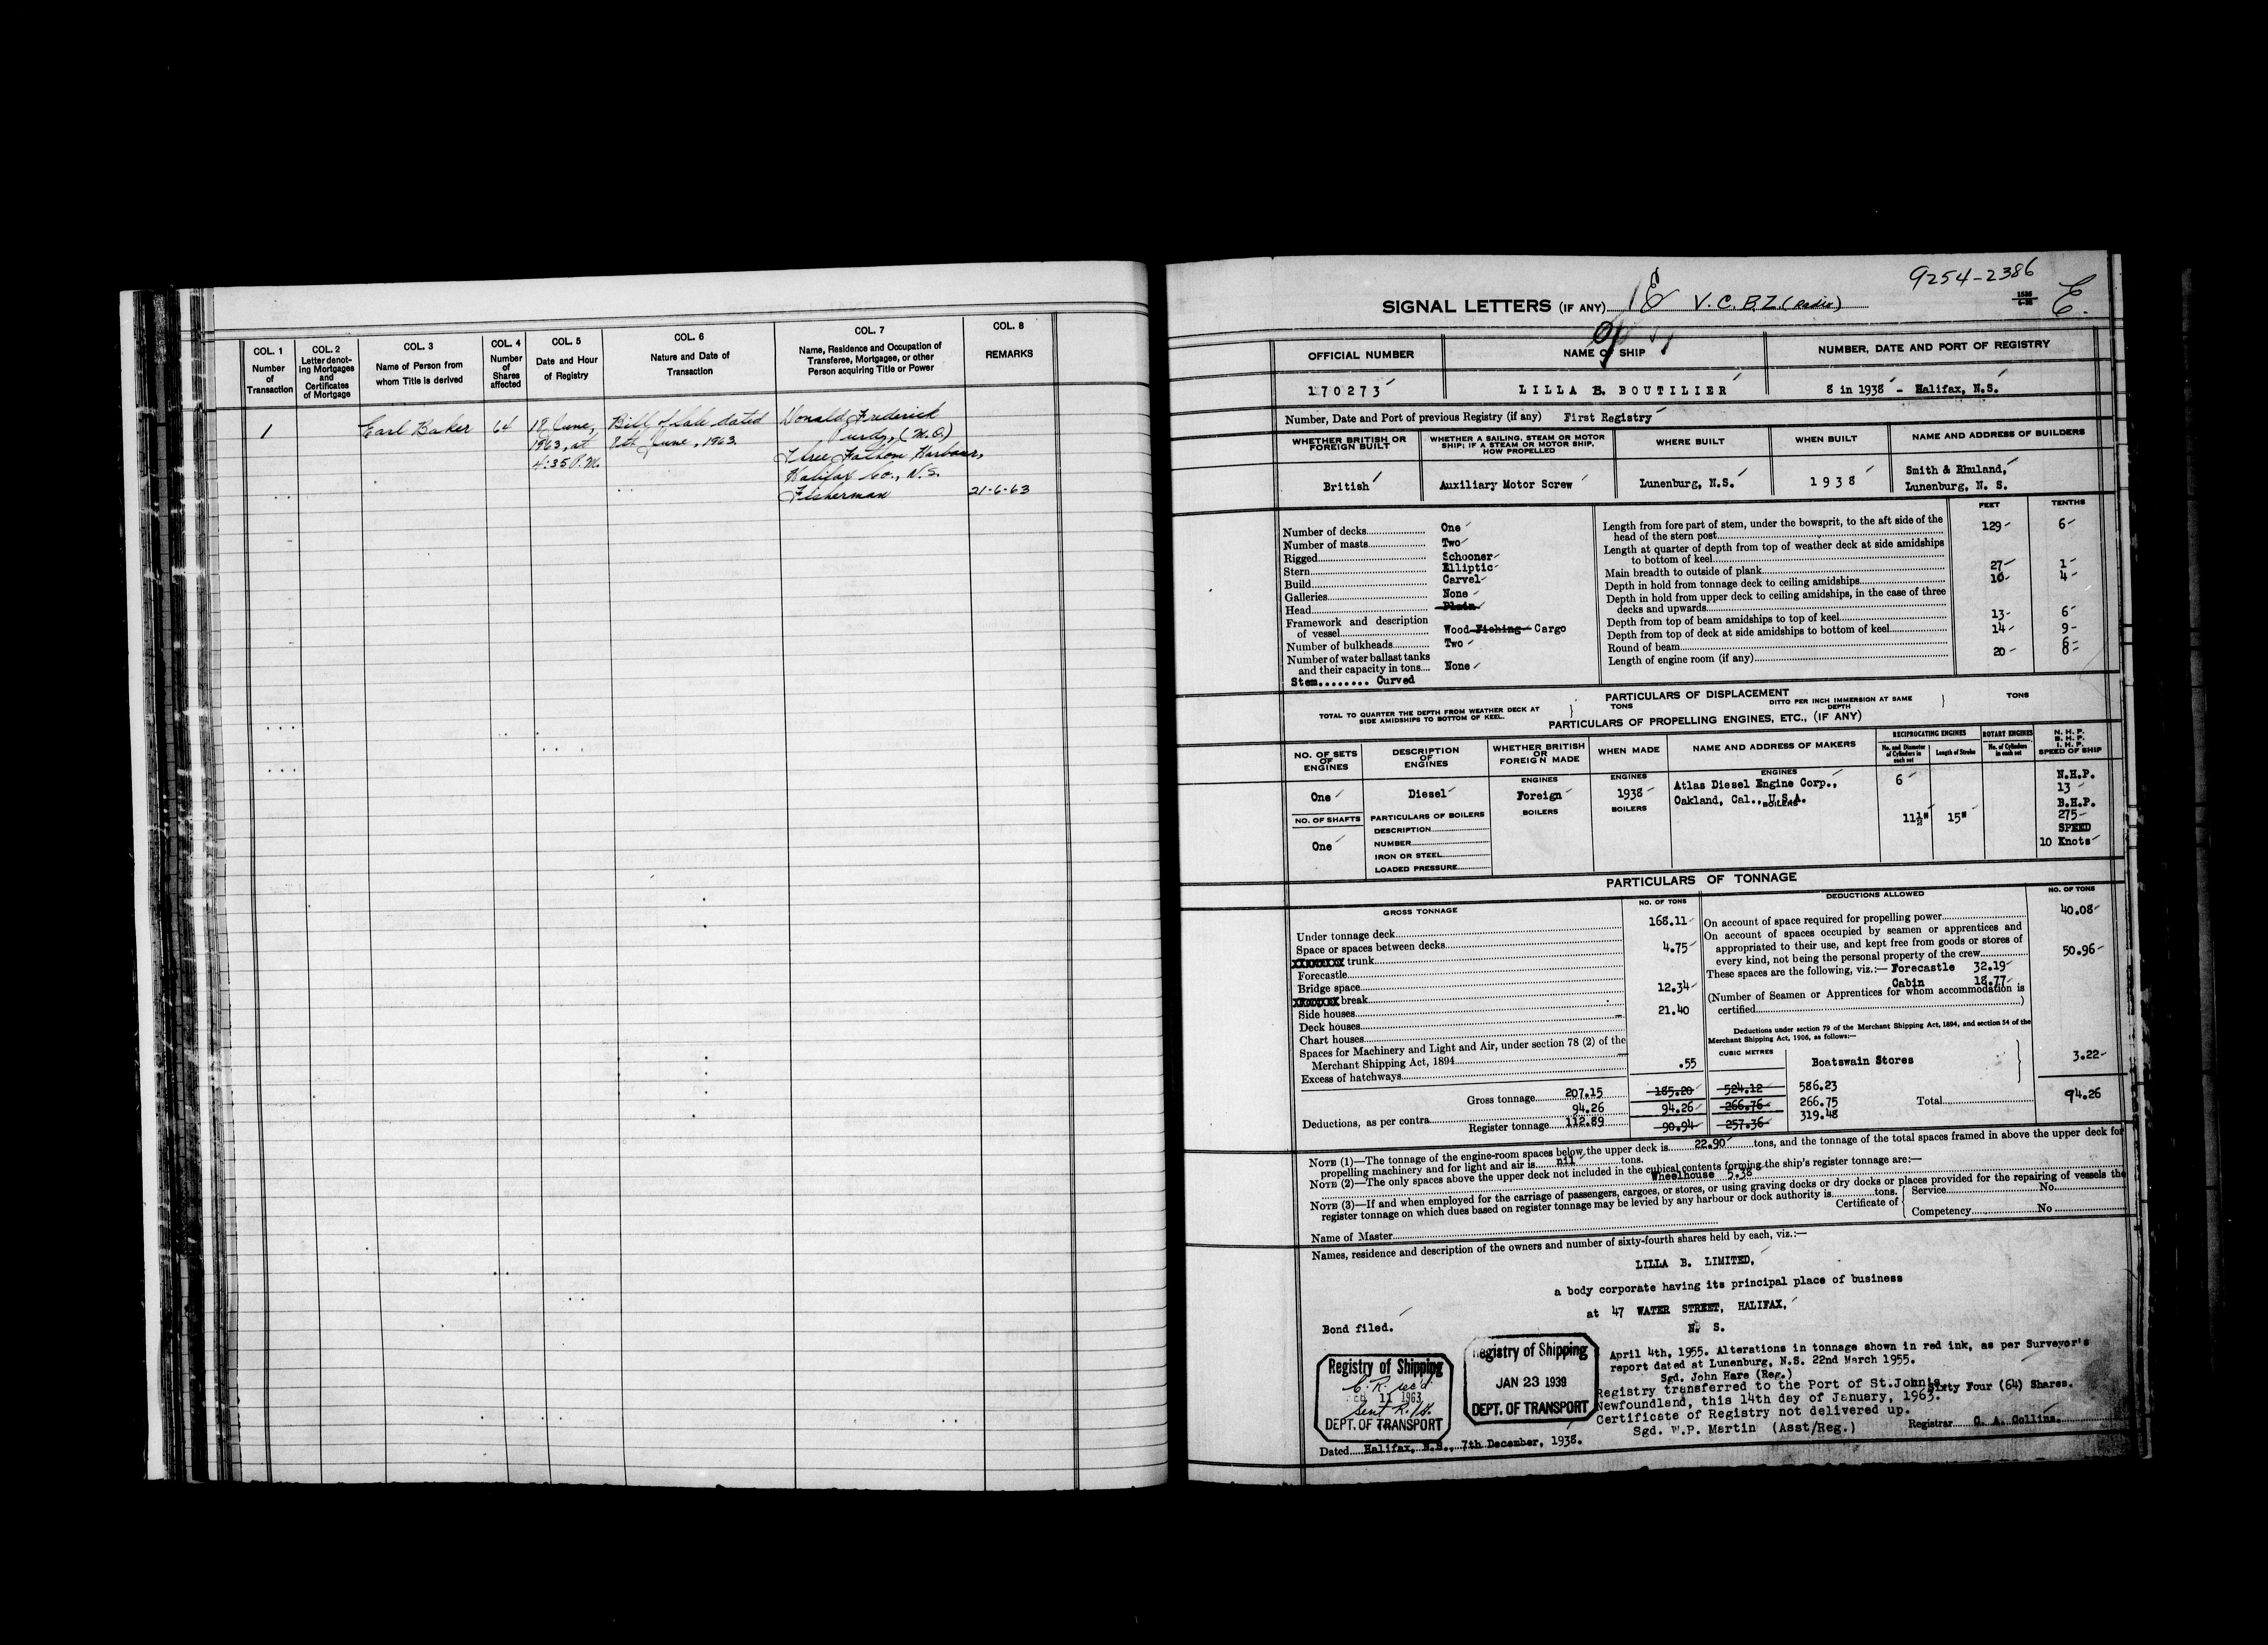 COL. 1
Number
of
Transaction
COL. 2
Letter denot-
ing Mortgages
and
Certificates
of Mortgage
COL. 3
Name of Person from
whom Title is derived
COL. 4
Number
of
Shares
affected
COL. 5
Date and Hour
of Registry
COL. 6
Nature and Date of
Transaction
COL. 7
Name, Residence and Occupation of
Transferee, Mortgagee, or other
Person acquiring Title or Power
COL. 8
REMARKS
1
Earl Baker
64
12 June,
1963, at
4:35 P.M.
Bill of Sale dated
8th June, 1963
Donald Frederick
Purdy, (M.O.)
Three Fathom Harbour,
Halifax Co., N.S.
Fisherman
21-6-63
9254-2386
SIGNAL LETTERS (IF ANY) V.C.B.Z. (Radio)
E.
OFFICIAL NUMBER
NAME OF SHIP
NUMBER, DATE AND PORT OF REGISTRY
170273
LILLA B. BOUTILIER
8 in 1938 - Halifax, N.S.
Number, Date and Port of previous Registry (if any) First Registry
WHETHER BRITISH OR
FOREIGN BUILT
WHETHER A SAILING, STEAM OR MOTOR
SHIP; IF A STEAM OR MOTOR SHIP,
HOW PROPELLED
WHERE BUILT
WHEN BUILT
NAME AND ADDRESS OF BUILDERS
British
Auxiliary Motor Screw
Lunenburg, N.S.
1938
Smith & Rhuland,
Lunenburg, N. S.
FEET
TENTHS
Number of decks One
Number of masts Two
Rigged Schooner
Stern Elliptic
Build Carvel
Galleries None
Head Plain
Framework and description
of vessel Wood Fishing Cargo
Number of bulkheads Two
Number of water ballast tanks
and their capacity in tons None
Stem........ Curved
Length from fore part of stem, under the bowsprit, to the aft side of the
head of the stern post 129 6
Length at quarter of depth from top of weather deck at side amidships
to bottom of keel
Main breadth to outside of plank 27 1
Depth in hold from tonnage deck to ceiling amidships 10 4
Depth in hold from upper deck to ceiling amidships, in the case of three
decks and upwards
Depth from top of beam amidships to top of keel 13 6
Depth from top of deck at side amidships to bottom of keel 14 9
Round of beam 8
Length of engine room (if any) 20
PARTICULARS OF DISPLACEMENT
TOTAL TO QUARTER THE DEPTH FROM WEATHER DECK AT
SIDE AMIDSHIPS TO BOTTOM OF KEEL.
TONS
DITTO PER INCH IMMERSION AT SAME
DEPTH
TONS
PARTICULARS OF PROPELLING ENGINES, ETC., (IF ANY)
NO. OF SETS
OF
ENGINES
DESCRIPTION
OF
ENGINES
WHETHER BRITISH
OR
FOREIGN MADE
WHEN MADE
NAME AND ADDRESS OF MAKERS
RECIPROCATING ENGINES
No. and Diameter
of Cylinders in
each set
Length of Stroke
ROTARY ENGINES
No. of Cylinders
in each set
N. H. P.
B. H. P.
I. H. P.
SPEED OF SHIP
One
Diesel
ENGINES
Foreign
BOILERS
ENGINES
1938
BOILERS
ENGINES
Atlas Diesel Engine Corp.,
Oakland, Cal., U.S.A.
BOILERS
6
11½"
15"
N.H.P.
13
B.H.P.
275
SPEED
10 Knots
NO. OF SHAFTS
One
PARTICULARS OF BOILERS
DESCRIPTION
NUMBER
IRON OR STEEL
LOADED PRESSURE
PARTICULARS OF TONNAGE
GROSS TONNAGE
NO. OF TONS
Under tonnage deck 168.11
Space or spaces between decks
trunk 4.75
Forecastle
Bridge space
break 12.34
Side houses
Deck houses 21.40
Chart houses
Spaces for Machinery and Light and Air, under section 78 (2) of the
Merchant Shipping Act, 1894
Excess of hatchways .55
Gross tonnage 207.15 185.20 524.12 586.23
Deductions, as per contra 94.26 94.26 266.76 266.75
Register tonnage 112.89 90.94 257.36 319.48
DEDUCTIONS ALLOWED
NO. OF TONS
On account of space required for propelling power 40.08
On account of spaces occupied by seamen or apprentices and
appropriated to their use, and kept free from goods or stores of
every kind, not being the personal property of the crew 50.96
These spaces are the following, viz.:— Forecastle 32.19
Cabin 18.77
(Number of Seamen or Apprentices for whom accommodation is
certified)
Deductions under section 79 of the Merchant Shipping Act, 1894, and section 54 of the
Merchant Shipping Act, 1906, as follows:—
CUBIC METRES
Boatswain Stores 3.22
Total 94.26
NOTE (1)—The tonnage of the engine-room spaces below the upper deck is 22.90 tons, and the tonnage of the total spaces framed in above the upper deck for
propelling machinery and for light and air is nil tons.
NOTE (2)—The only spaces above the upper deck not included in the cubical contents forming the ship's register tonnage are:—
Wheelhouse 5.38
NOTE (3)—If and when employed for the carriage of passengers, cargoes, or stores, or using graving docks or dry docks or places provided for the repairing of vessels the
register tonnage on which dues based on register tonnage may be levied by any harbour or dock authority is tons.
Certificate of
Service No.
Competency No
Name of Master
Names, residence and description of the owners and number of sixty-fourth shares held by each, viz.:—
LILLA B. LIMITED,
a body corporate having its principal place of business
at 47 WATER STREET, HALIFAX,
N. S.
Bond filed.
Registry of Shipping
C.R. rec'd
11 1963
DEPT. OF TRANSPORT
Registry of Shipping
JAN 23 1939
DEPT. OF TRANSPORT
April 4th, 1955. Alterations in tonnage shown in red ink, as per Surveyor's
report dated at Lunenburg, N.S. 22nd March 1955.
Sgd. John Hare (Reg.)
Registry transferred to the Port of St.Johns
Newfoundland, this 14th day of January, 1963.
Certificate of Registry not delivered up.
Sgd. W.P. Martin (Asst/Reg.)
Sixty Four (64) Shares.
Registrar C. A. Collins.
Dated Halifax, N.S., 7th December, 1938.